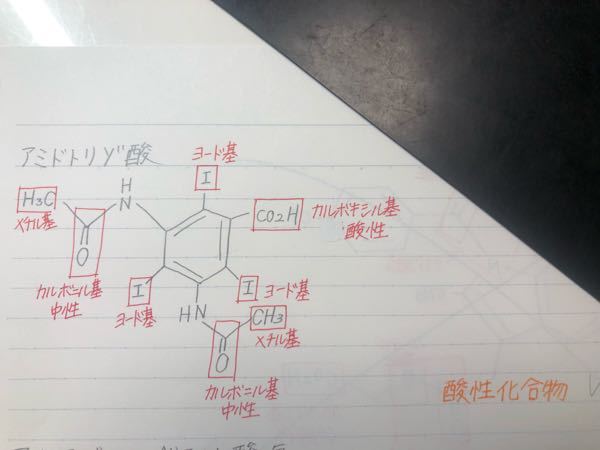 アミドトリゾ酸
ヨード基
I
H
N
H3C
メチル基
CO2H
カルボキシル基
酸性
O
カルボニル基
中性
I
ヨード基
I
ヨード基
HN
CH3
メチル基
O
カルボニル基
中性
酸性化合物